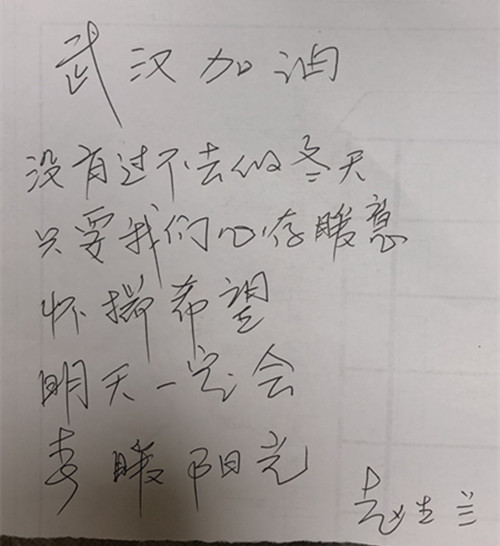 武汉加油
没有过不去的冬天
只要我们心存暖意
怀揣希望
明天一定会
春暖阳光
赵生兰